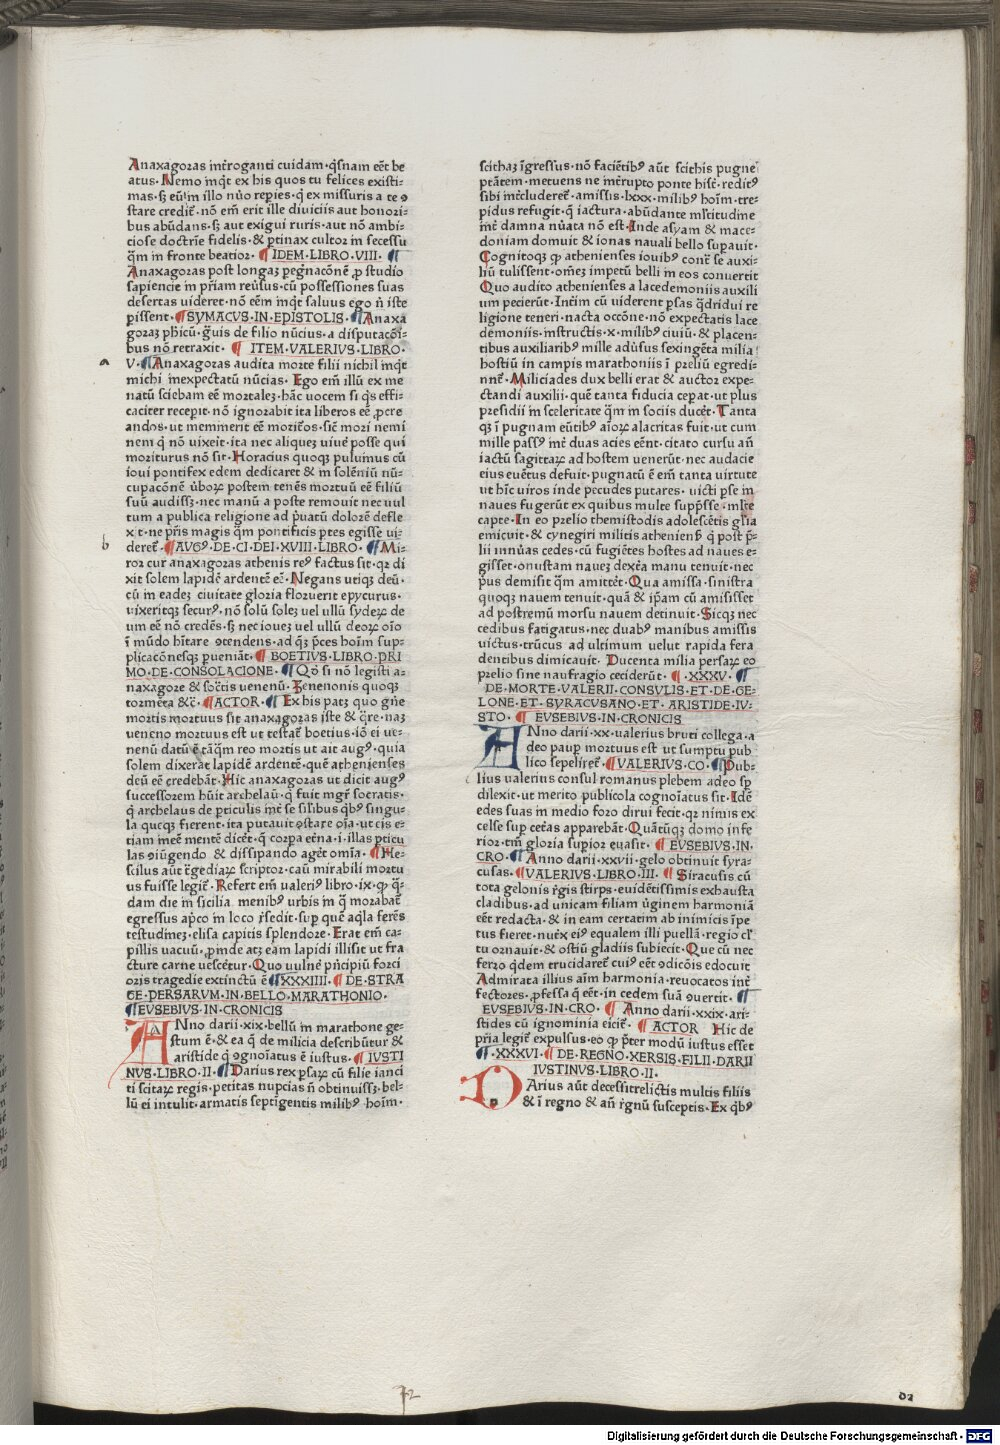 Anaxagoras int̄roganti cuidam·qͥsnam eēt be
atus·Nemo inqͭ ex his quos tu felices existi-
mas·sꝫ eūīm illo nūo repies·q̄ ex miſſuris a te ꝯ
ſtare credit̄·nō em̄ erit ille diviciis aut honori-
bus abūdans·sꝫ aut exigui ruris·aut nō ambi-
tioſe doctrīe fidelis·& ꝑtinax cultor in ſeceſſu
q̄m in fronte beatior·¶ IDEM·LIBRO·VIII·¶
Anaxagoras post longaꝫ peg̓nacōnē ꝓ ſtudio
sapiencie in pr̄iam reu̓ſus·cū poſſeſſiones ſuas
deſertas uideret·nō eēm inqͭ ſaluus ego n̄ iſte
piſſent·¶SYMACVS·IN·EPISTOLIS·¶Anaxa
goraꝫ ph̄icū·gͣuis de filio nūcius·a diſputacōi-
bus nō retraxit·¶ ITEM·VALERIVS·LIBRO·
V·¶Anaxagoras audita morte filii nichil inqͭ
michi inexpectatū nūcias·Ego em̄ illū ex me
natū ſciebam eē mortaleꝫ·hāc uocem ſi qͥs effi-
caciter recepit·nō ignorabit ita liberos eē ꝓcre
andos·ut meminerit eē moritēos·ſic̄ mori nemi
nem q̄ nō uixeit·ita nec aliqueꝫ uiuē poſſe qui
moriturus nō ſit·Horacius quoqꝫ puluinus cū
ioui pontifex edem dedicaret & in ſolēniū nū-
cupacōnē u̓boꝝ poſtem tenēs mortuū eē filiū
ſuū audiſſꝫ·nec manū a poſte remouit nec uul
tum a publica religione ad pͥuatū dolorē defle
xit·ne pr̄is magis q̄m pontificis ꝑtes egiſſe ui-
dereet̄·¶AVG⁹·DE·CI·DEI·XVIII·LIBRO·¶Mi-
ror cur anaxagoras athenis re⁹ factus ſit·qꝛ di
xit ſolem lapidē ardentē eē·Negans utiqꝫ deū·
cū in eadeꝫ ciuitate gloria floruerit epycurus·
vixeritqꝫ ſecur⁹·nō ſolū ſoleꝫ uel ullū ſyderꝝ de
um eē nō credēs·sꝫ nec ioueꝫ uel ullū deoꝝ oīo
ī mūdo hītare ꝯtendens·ad q̄ꝫ p̄ces hoīm ſup-
plicacōneſqꝫ ꝑueniāt·¶ BOETIVS·LIBRO·PRI
MO·DE·CONSOLACIONE·¶Qō ſi nō legiſti a-
naxagore & ſoc̄tis uenenū·Zenenonis quoqꝫ
tormēta &c̄·¶ACTOR·¶Ex his patꝫ quo gn̄e
mortis mortuus ſit anaxagoras iſte & q̄re·naꝫ
veneno mortuus eſt ut teſtat̄ boetius·iō ei ue-
nenū datū ē tāq̄m reo mortis ut ait aug⁹·quia
ſolem dixerat lapidē ardentē·quē athenienſes
deū eē credebāt·Hic anaxagoras ut dicit aug⁹
ſucceſſorem hūit archelaū·q̄ fuit mgr̄ ſocratis·
q̄ archelaus de ꝑticulis int̄ ſe ſilibus qͥb⁹ ſingu-
la queqꝫ fierent·ita putauit ꝯſtare oīa·ut eis e-
tiam ineē mentē dicēt·q̄ corpa et̄na·i·illas ꝑticu
las ꝯiūgendo & diſſipando agēt om̄ia·¶He-
ſcilus aūt t̄gediaꝝ ſcriptor·caū mirabili mortu
us fuiſſe legit̄·Refert em̄ ualeri⁹ libro·ix·ꝙ q̄-
dam die in ſicilia menib⁹ urbis in q̄ morabat̄
egreſſus aprīco in loco rͤſedit·ſuꝑ quē aqͥla ferēs
teſtudineꝫ·eliſa capitis ſplendore·Erat em̄ ca-
pillis vacuū·ꝓinde atqꝫ eam lapidi illiſit ut fra
cture carne ueſcēt̄·Quo uulnē pn̄cipiū forci
oris tragedie extinctū ē·¶XXXIIII·¶DE·STRA
GE·PERSARVM·IN·BELLO·MARATHONIO·
¶EVSEBIVS·IN·CRONICIS
ANno darii·xix·bellū in marathone ge-
ſtum ē·& ea q̄ de milicia deſcribūtur &
ariſtide q̄ ꝯgnoīatus ē iuſtus·¶IVSTI
NVS·LIBRO·II·¶Darius rex pſaꝝ cū filie ianci
ti ſcitaꝝ regis·petitas nupcias n̄ obtinuiſſꝫ·bel-
lū ei intulit·armatis ſeptīgentis milib⁹ hoīm·
ſcithaꝫ īgreſſus·nō faciētib⁹ aūt ſcithis pugne
ptātem·metuens ne int̄rupto ponte hiſt̄·redit⁹
ſibi int̄cluderet̄·amiſſis·lxxx·milib⁹ hoīm·tre-
pidus refugit·q̄ iactura·abūdante ml̄titudine
int̄ damna nūata nō eſt·Inde aſyam & mace-
doniam domuit & ionas nauali bello ſuꝑauit·
Cognitoqꝫ ꝙ athenienſes iouib⁹ cont̄ ſe auxi-
liū tuliſſent·om̄eꝫ impetū belli in eos conuertit
Quo audito athenienſes a lacedemoniis auxili
um pecierūt·Int̄im cū viderent pſas q̄dridui re
ligione teneri·nacta occōne·nō expectatis lace
demoniis·inſtructis·x·milib⁹ ciuiū·& placen-
tibus auxiliarib⁹ mille adu̓ſus ſexingēta milia
hoſtiū in campis marathoniis ī prēliū egredi-
unt̄·Miliciades dux belli erat & auctor expe-
ctandi auxilii·quē tanta fiducia ceꝑat·ut plus
preſidii in ſceleritate q̄m in ſociis ducēt·Tanta
qꝫ ī pugnam eūtib⁹ aīoꝝ alacritas fuit·ut cum
mille paſſ⁹ int̄ duas acies eēnt·citato curſu añ
iactū ſagittaꝝ ad hoſtem venerūt·nec audacie
eius euētus defuit·pugnatū ē em̄ tanta virtute
ut hīc viros inde pecudes putares·uicti pſe in
naues fugerūt ex quibus multe ſuppͣſſe·ml̄te
capte·In eo prelio themiſtodis adoleſcētis gl̄ia
emicuit·& cynegiri militis athenienſ q̄ poſt p̄-
lii innūas cedes·cū fugiētes hoſtes ad naues e-
giſſet·onuſtam naueꝫ dext̄a manu tenuit·nec
p̄us demiſit q̄m amittēt·Qua amiſſa·ſiniſtra
quoqꝫ nauem tenuit·quā & ip̄am cū amiſiſſet
ad poſtremū morſu nauem detinuit·Sicqꝫ nec
cedibus fatigatus·nec duab⁹ manibus amiſſis
victus·trūcus ad ultimum velut rapida fera
dentibus dimicauit·Ducenta milia perſaꝝ eo
prelio ſine naufragio ceciderūt·¶·XXXV·¶
DE·MORTE·VALERII·CONSVLIS·ET·DE·GE-
LONE·ET·SYRACVSANO·ET·ARISTIDE·IV-
STO·¶ EVSEBIVS·IN·CRONICIS
ANno darii·xx·valerius bruti collega·a
deo pauꝑ mortuus eſt ut ſumptu pub
lico ſepelireet̄·¶VALERIVS·CO·¶Pub-
lius valerius conſul romanus plebem adeo ꝑ
dilexit·ut merito publicola cognoīatus ſit·Idē
edes ſuas in medio foro dirui fecit·qꝛ nimis ex
celſe ſuꝑ cet̄as apparebāt·Quātūqꝫ domo infe
rior·tm̄ gloria ſuꝑior euaſit·¶ EVSEBIVS·IN·
CRO·¶Anno darii·xxvii·gelo obtinuit ſyra-
cuſas·¶VALERIVS·LIBRO·III·¶ Siracuſis cū
tota gelonis rͤgis ſtirps·euidētiſſimis exhauſta
cladibus·ad unicam filiam u̓ginem harmoniā
eēt redacta·& in eam certatim ab inimicis īpe-
tus fieret·nut̄x ei⁹ equalem illi puellā·regio cl̄
tu ornauit·& oſtiū gladiis ſubiecit·Que cū nec
ferro qͥdem trucidaret̄ cui⁹ eēt ꝯdicōis edocuit
Admirata illius aīm harmonia·reuocatos int̄
fectores·ꝓfeſſa q̄ eēt·in cedem ſuā ꝯuertit·¶
EVSEBIVS·IN·CRO·¶ Anno darii·xxix·ari-
ſtides cū ignominia eicit̄·¶ ACTOR Hic de
pr̄ia legit̄ expulſus·eo ꝙ p̄ter modū iuſtus eſſet
¶·XXXVI·¶DE·REGNO·XERSIS·FILII·DARII
IVSTINVS·LIBRO·II·
DArius aūt deceſſit relictis multis filiis
& ī regno & añ rͤgnū ſuſceptis·Ex qͥb⁹
a
b
72
d2
Digitalisierung gefördert durch die Deutsche Forschungsgemeinschaft - DFG